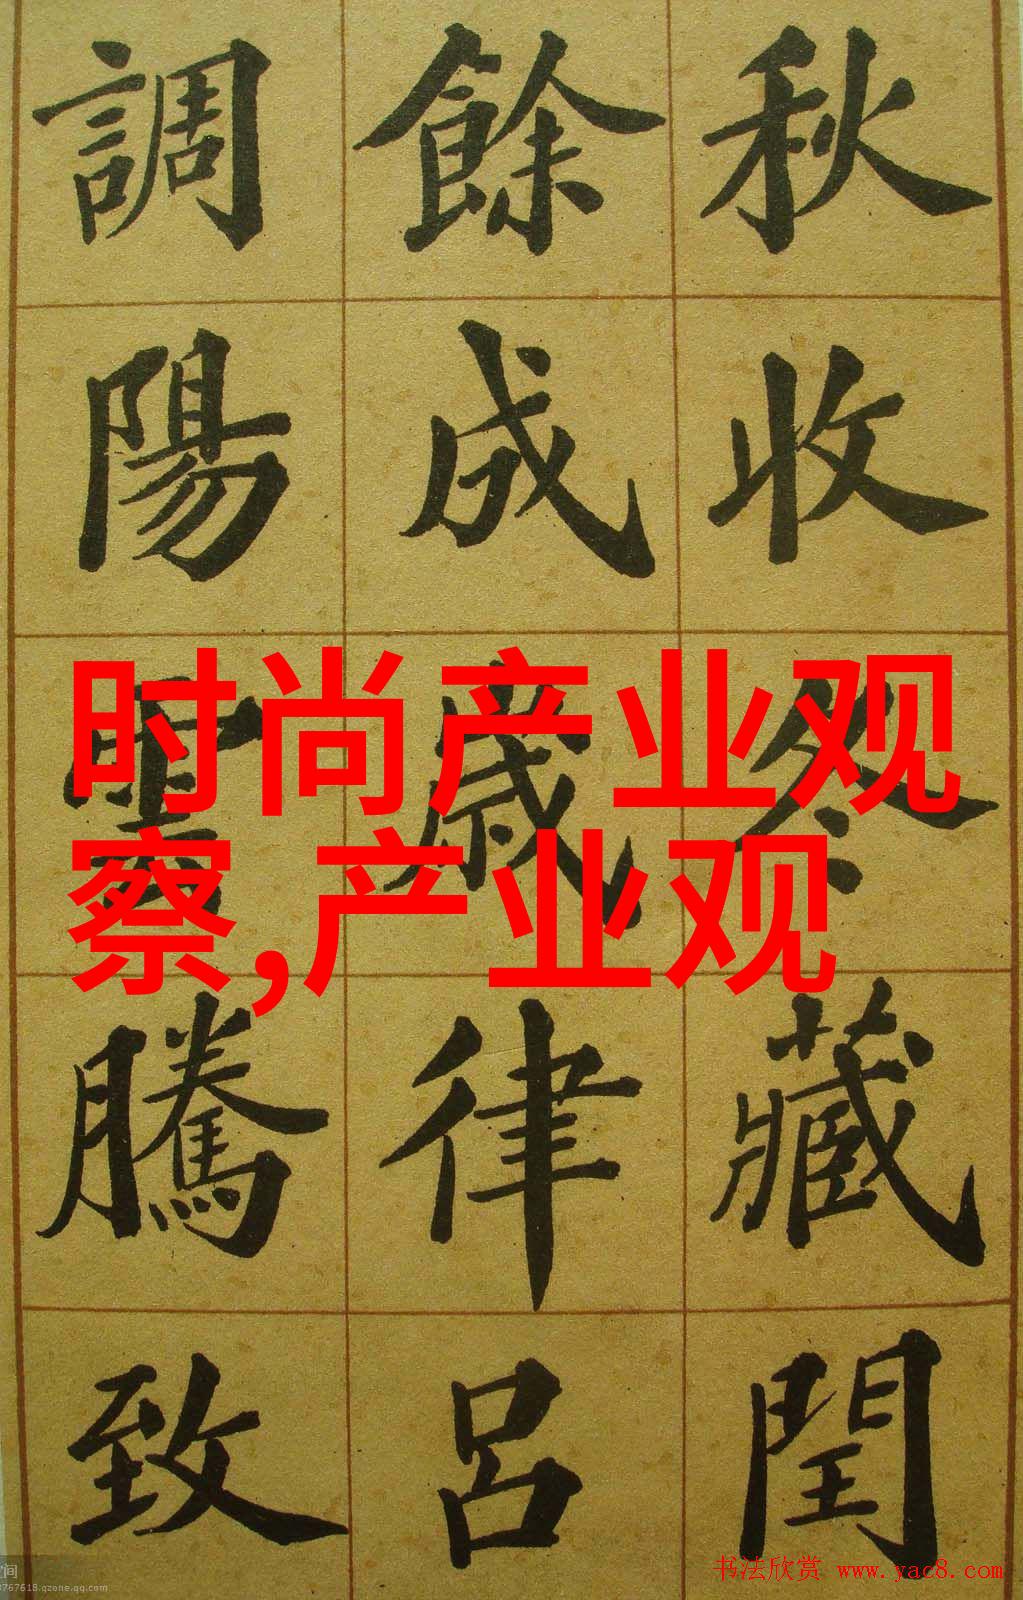 秋收冬藏閏
餘成歲律呂
調陽雲騰致
时尚产业观
察,产业观
书法欣赏 www.yac8.com
空间
8767618.qzone.qq.com